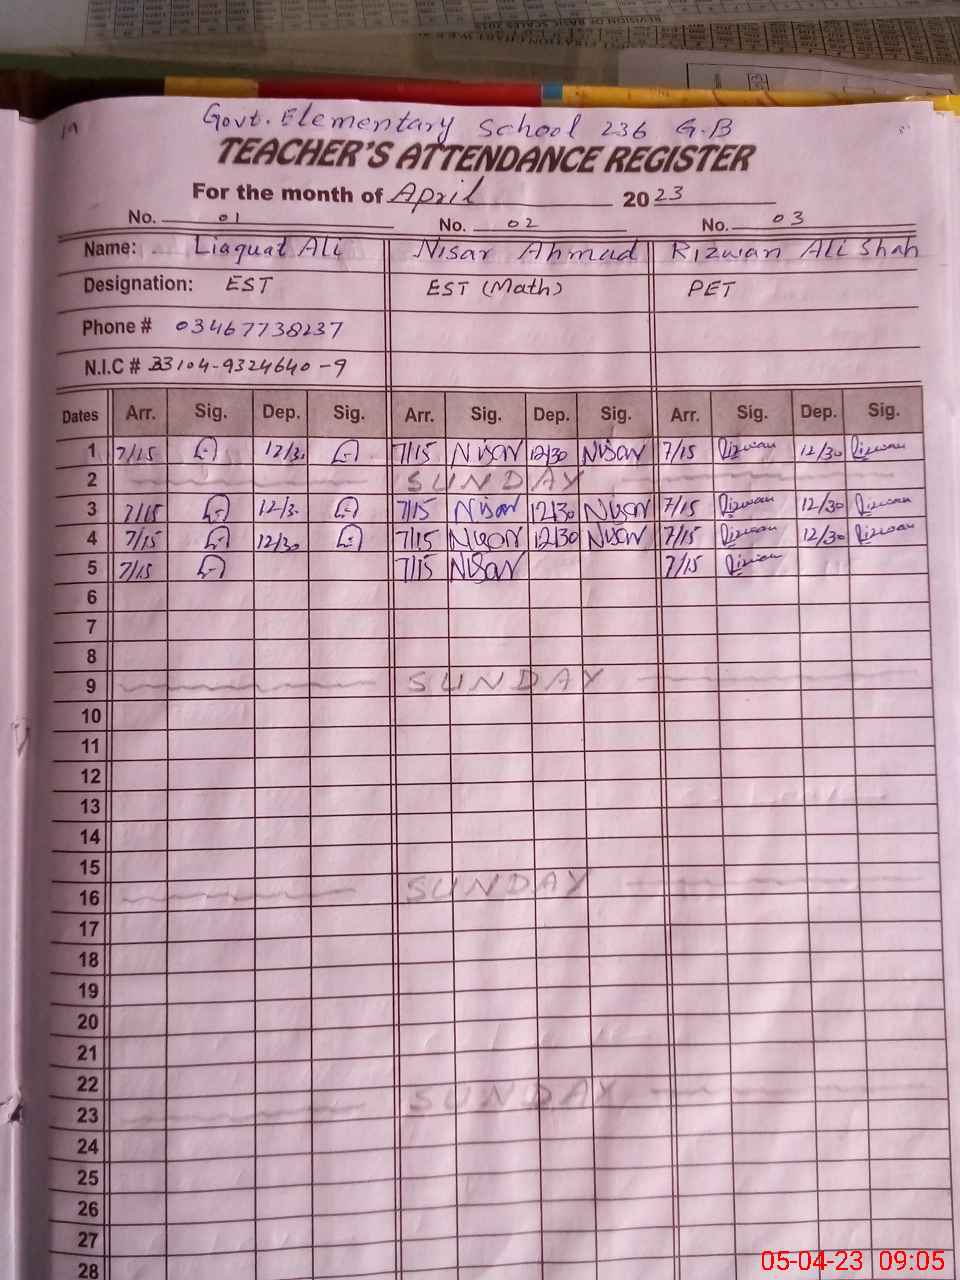 REVISION OF BASIC SCALES 2015
19
Govt. Elementary School 236 G.B
TEACHER'S ATTENDANCE REGISTER
For the month of April 2023
No. 01 No. 02 No. 03
Name: Liaquat Ali Nisar Ahmad Rizwan Ali Shah
Designation: EST EST (Math) PET
Phone # 03467738237
N.I.C # 33104-9324640-9
Dates Arr. Sig. Dep. Sig. Arr. Sig. Dep. Sig. Arr. Sig. Dep. Sig.
1 7/15 12/30 7/15 Nisar 12/30 Nisar 7/15 Rizwan 12/30 Rizwan
2 SUNDAY
3 7/15 12/30 7/15 Nisar 12/30 Nisar 7/15 Rizwan 12/30 Rizwan
4 7/15 12/30 7/15 Nisar 12/30 Nisar 7/15 Rizwan 12/30 Rizwan
5 7/15 7/15 Nisar 7/15 Rizwan
6
7
8
9 SUNDAY
10
11
12
13
14
15
16 SUNDAY
17
18
19
20
21
22
23 SUNDAY
24
25
26
27
28
05-04-23 09:05